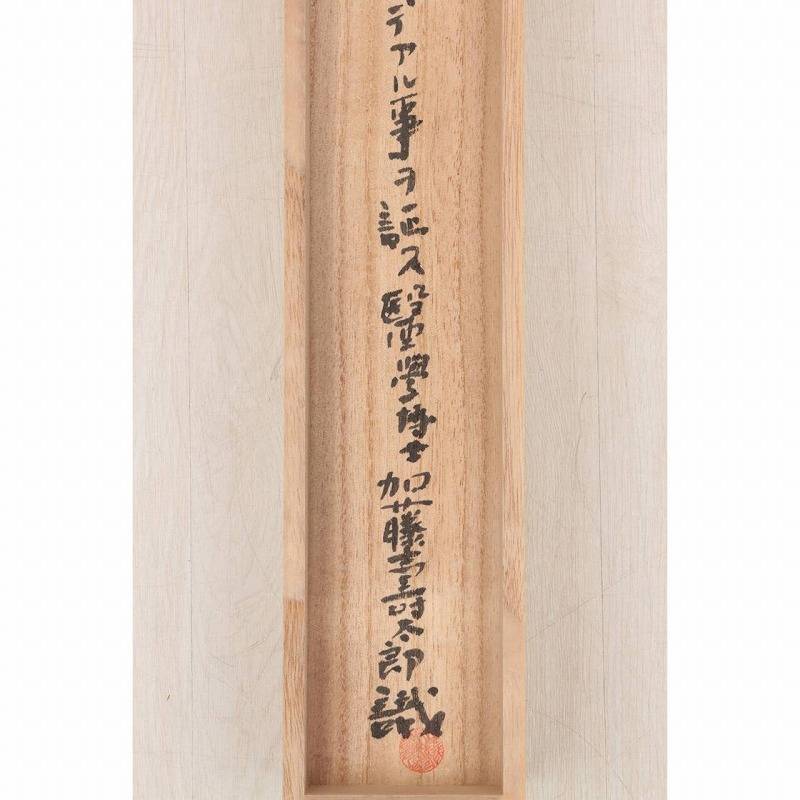 テアル事ヲ証ス醫學博士加藤壽太郎識